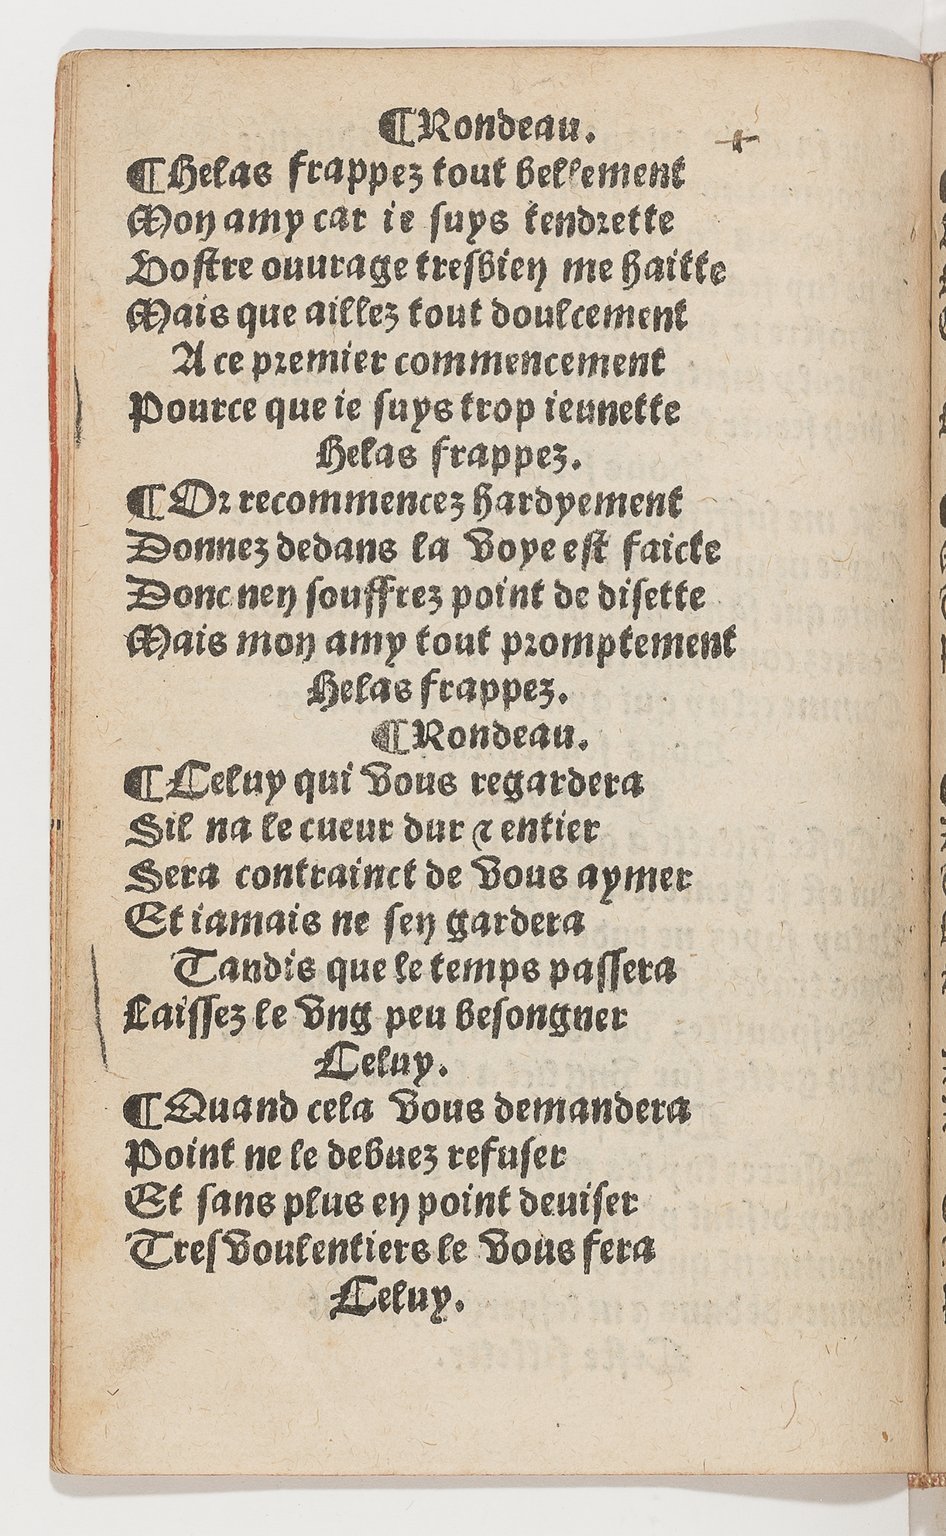 ¶Rondeau.
¶Helas frappez tout bellement
Mon amy car ie suys tendrette
Vostre ouurage tresbien me haitte
Mais que aillez tout doulcement
A ce premier commencement
Pource que ie suys trop ieunette
Helas frappez.
¶Or recommencez hardyement
Donnez dedans la voye est faicte
Donc nen souffrez point de disette
Mais mon amy tout promptement
Helas frappez.
¶Rondeau.
¶Celuy qui vous regardera
Sil na le cueur dur ⁊ entier
Sera contrainct de vous aymer
Et iamais ne sen gardera
Tandis que le temps passera
Laissez le vng peu besongner
Celuy.
¶Quand cela vous demandera
Point ne le debuez refuser
Et sans plus en point deuiser
Tresvoulentiers le vous fera
Celuy.